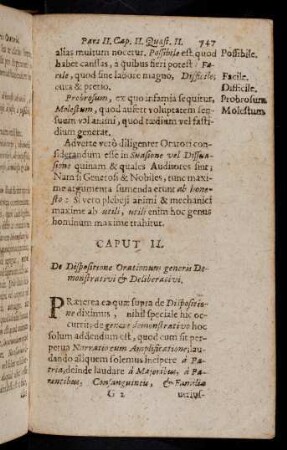 Pars II. Cap. II. Quæst. II. 747
alias multum nocetur. Possibile est quod Possibile.
habet caussas, à quibus fieri potest: Fa-
cile, quod sine labore magno, Difficile, Facile.
cura & pretio. Difficile.
Probrosum, ex quo infamia sequitur, Probrosum.
Molestum, quod aufert voluptatem sen- Molestum
suum vel animi, quod tædium vel fasti-
dium generat.
Adverte verò diligenter Oratori con-
siderandum esse in Suasione vel Dissua-
sione quinam & quales Auditores sint;
Nam si Generosi & Nobiles, tunc maxi-
me argumenta sumenda erunt ab hones-
to: si vero plebeji animi & mechanici
maxime ab utili, utili enim hoc genus
hominum maxime trahitur.
CAPUT II.
De Dispositione Orationum generis De-
monstrativi & Deliberativi.
PRæterea ea quæ supra de Dispositio-
ne diximus, nihil speciale hic oc-
currit; de genere demonstrativo hoc
solum addendum est, quod cum sit per-
petua Narratio cum Amplificatione, lau-
dando aliquem solemus incipere à Pa-
tria, deinde laudare à Majoribus, à Pa-
rentibus, Consanguineis, & Familia
G 2